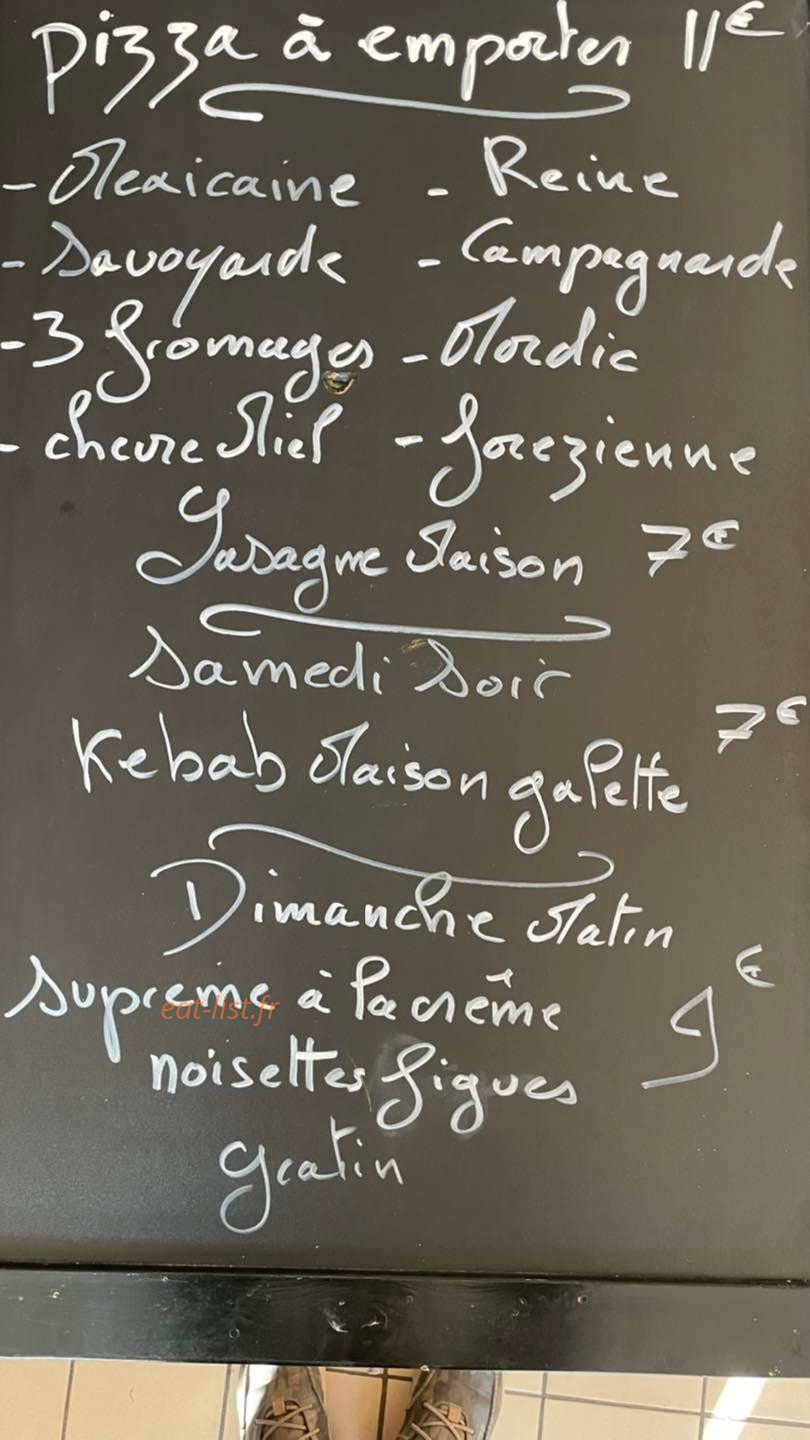 Pizza à emporter 11€
- Mexicaine - Reine
- Savoyarde - Campagnarde
- 3 fromages - Nordic
- chevre Miel - forezienne
Lasagne Maison 7€
Samedi Soir
Kebab Maison galette 7€
Dimanche Matin
Supreme à la crême 9€
noisettes figues
gratin
eat-list.fr